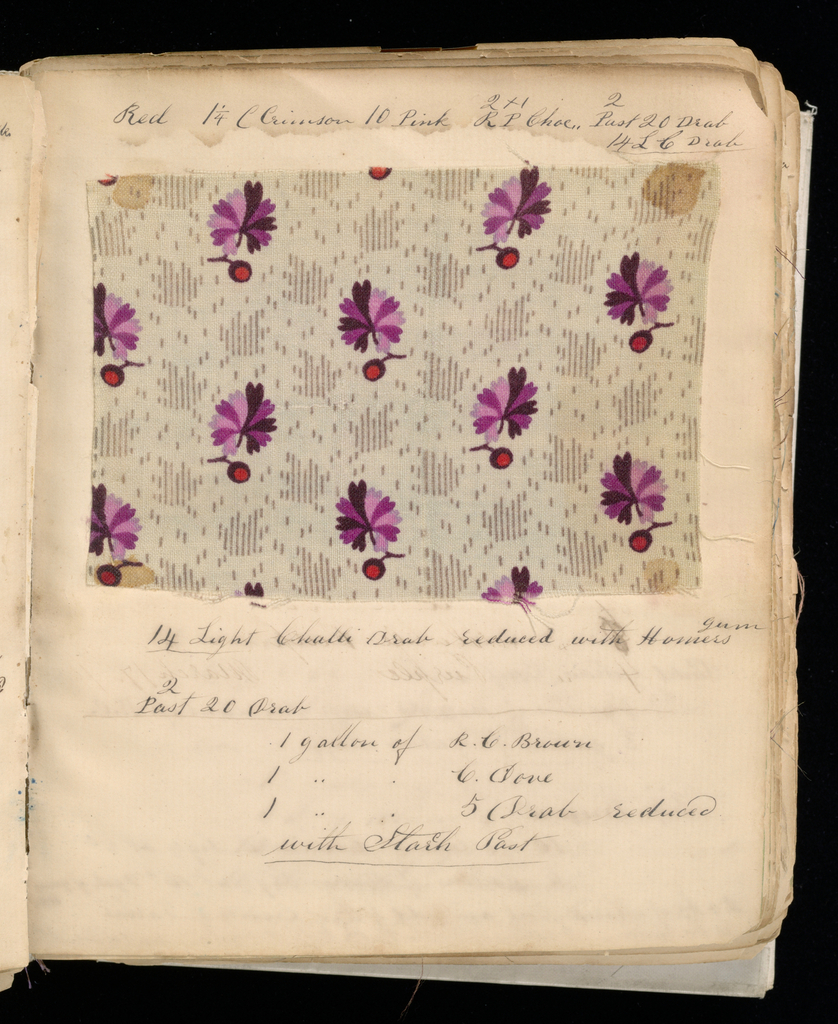 Red 1¼ C Crimson 10 Pink 2+1 R P Choc,, 2 Past 20 Drab
14 L C Drab
14 Light Challi Drab reduced with Homers gum
2
Past 20 Drab
1 gallon of R. C. Brown
1 " . C. Dove
1 " . 5 Drab reduced
with Starch Past